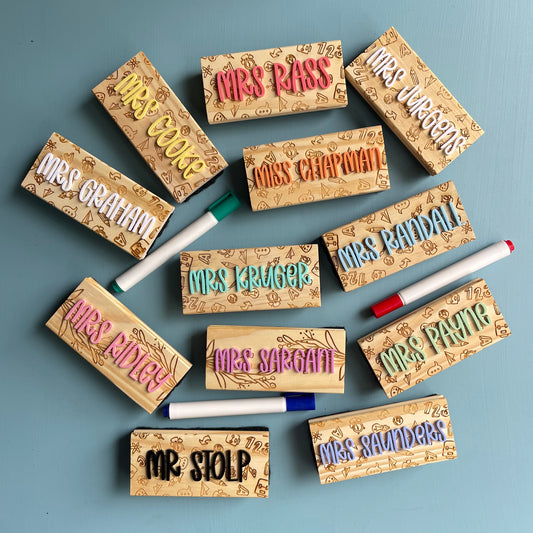 MRS RASS
MRS COOKE
MRS JURGENS
MISS CHAPMAN
MRS GRAHAM
MRS RANDALL
MRS KRUGER
MRS RIDLEY
MRS PAYNE
MRS SARGANT
MRS SAUNDERS
MR STOLP